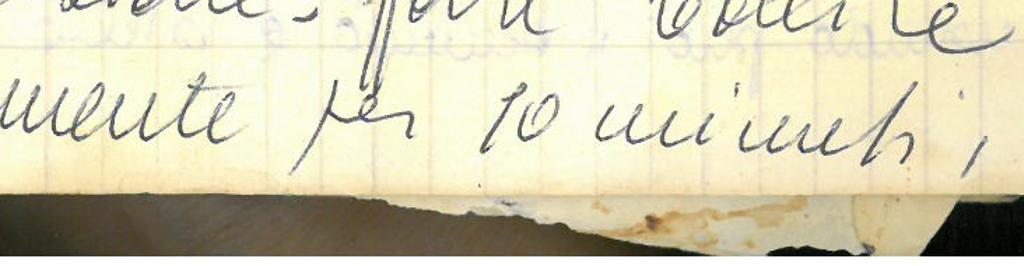 fare bollire
mente per 10 minuti,